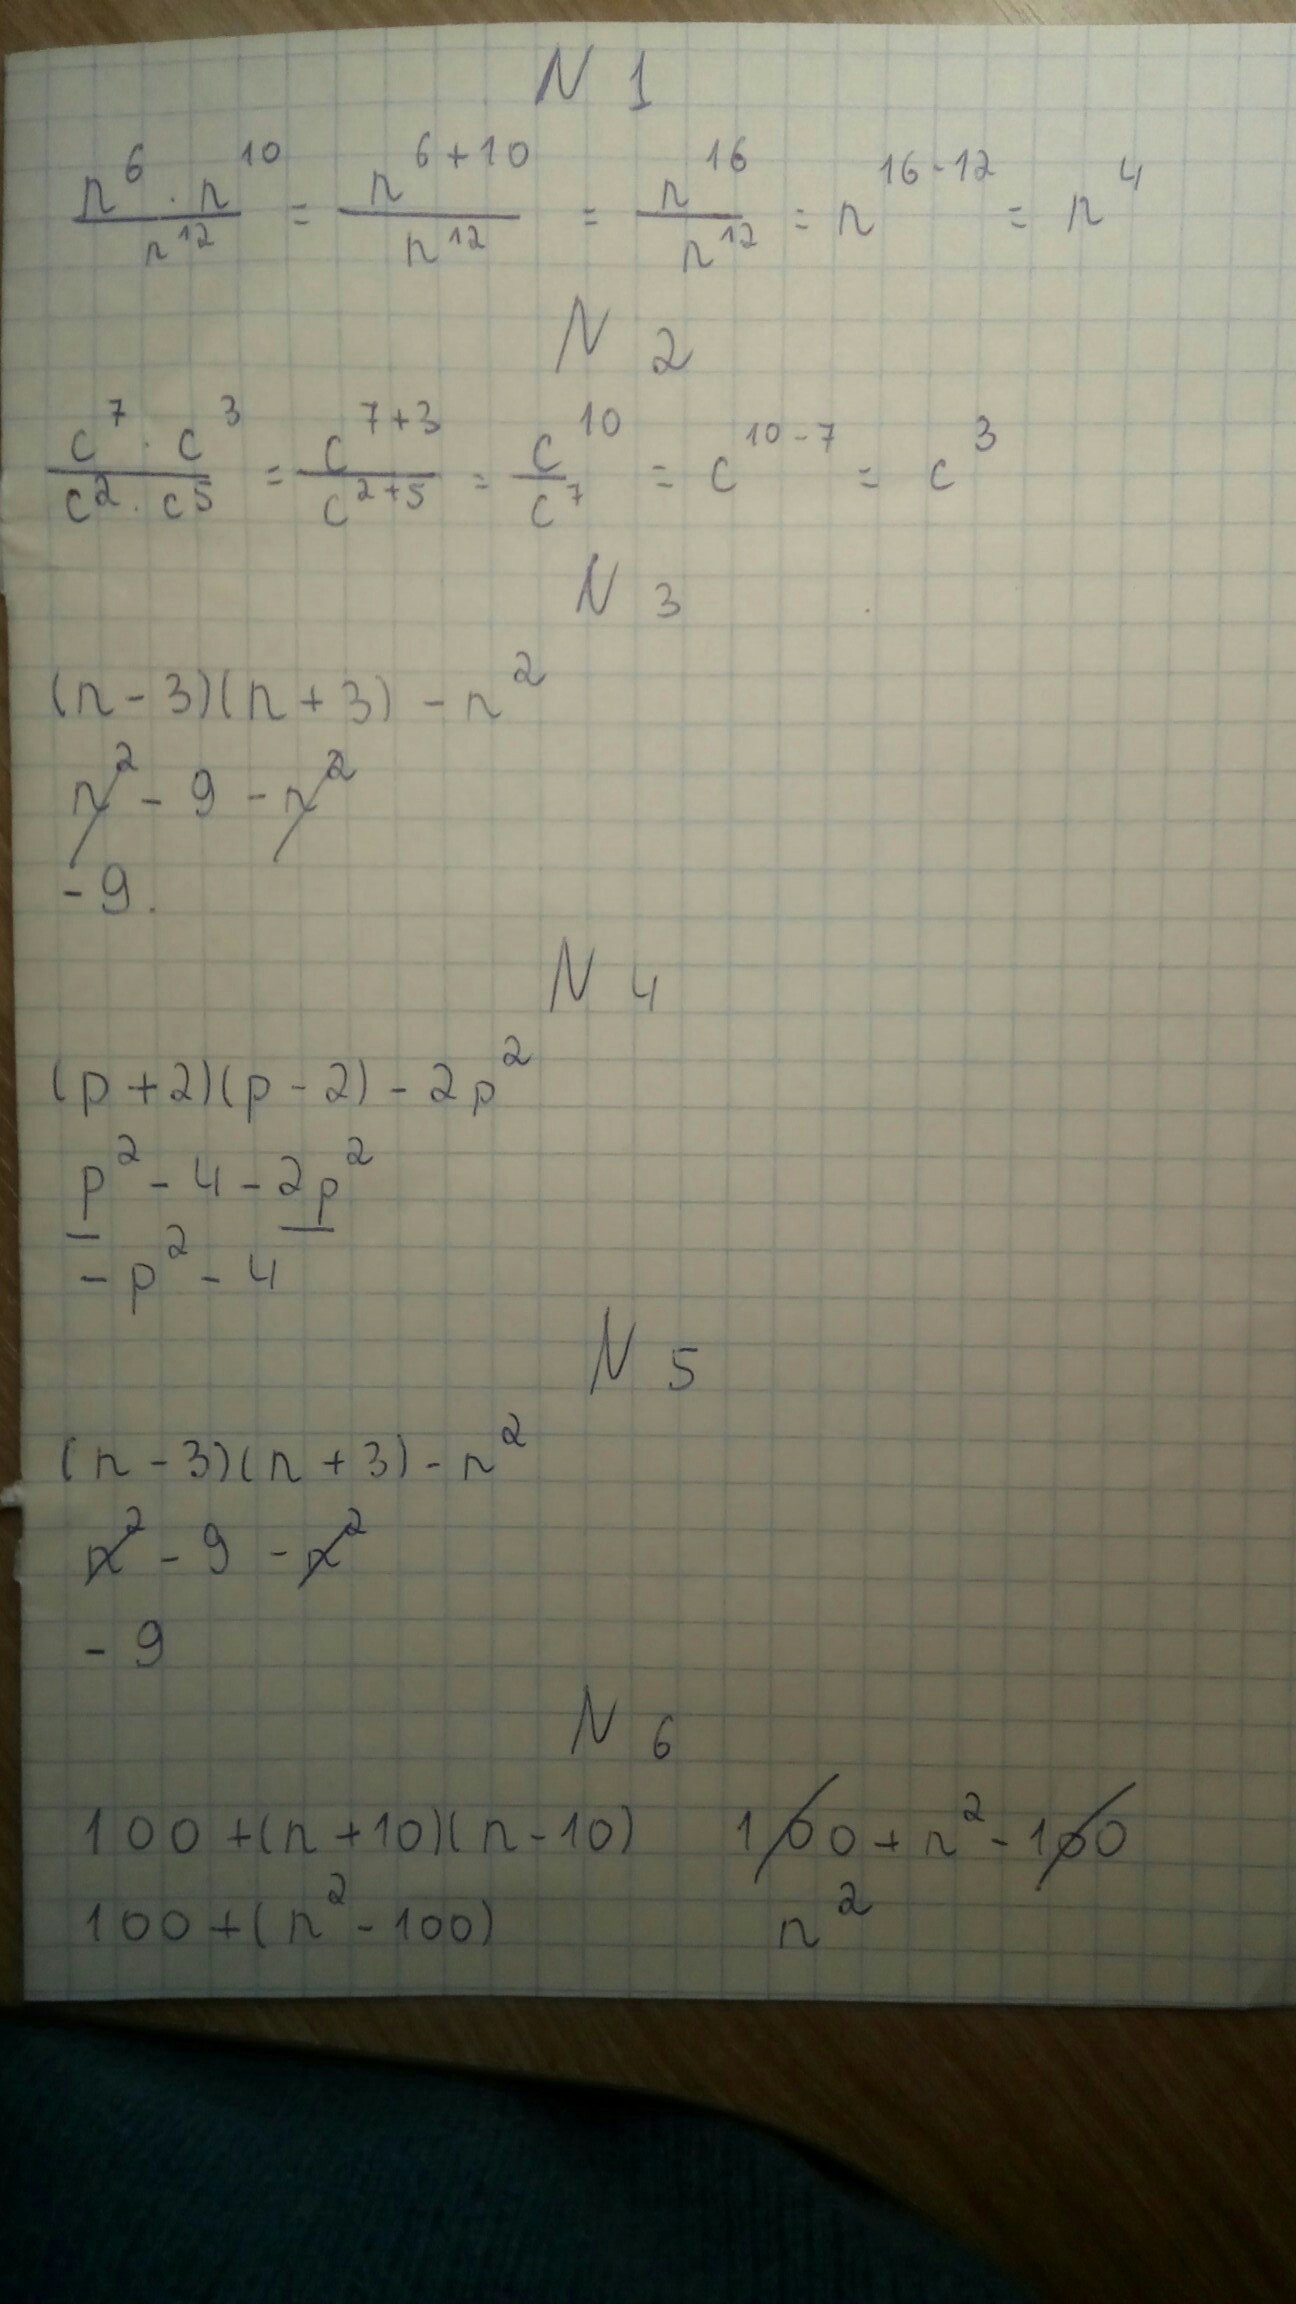 N 1
n^6 · n^10 / n^12 = n^(6+10) / n^12 = n^16 / n^12 = n^(16-12) = n^4
N 2
c^7 · c^3 / c^2 · c^5 = c^(7+3) / c^(2+5) = c^10 / c^7 = c^(10-7) = c^3
N 3
(n - 3)(n + 3) - n²
n² - 9 - n²
- 9.
N 4
(p + 2)(p - 2) - 2p²
p² - 4 - 2p²
- p² - 4
N 5
(n - 3)(n + 3) - n²
n² - 9 - n²
- 9
N 6
100 + (n + 10)(n - 10)
100 + (n² - 100)
100 + n² - 100
n²